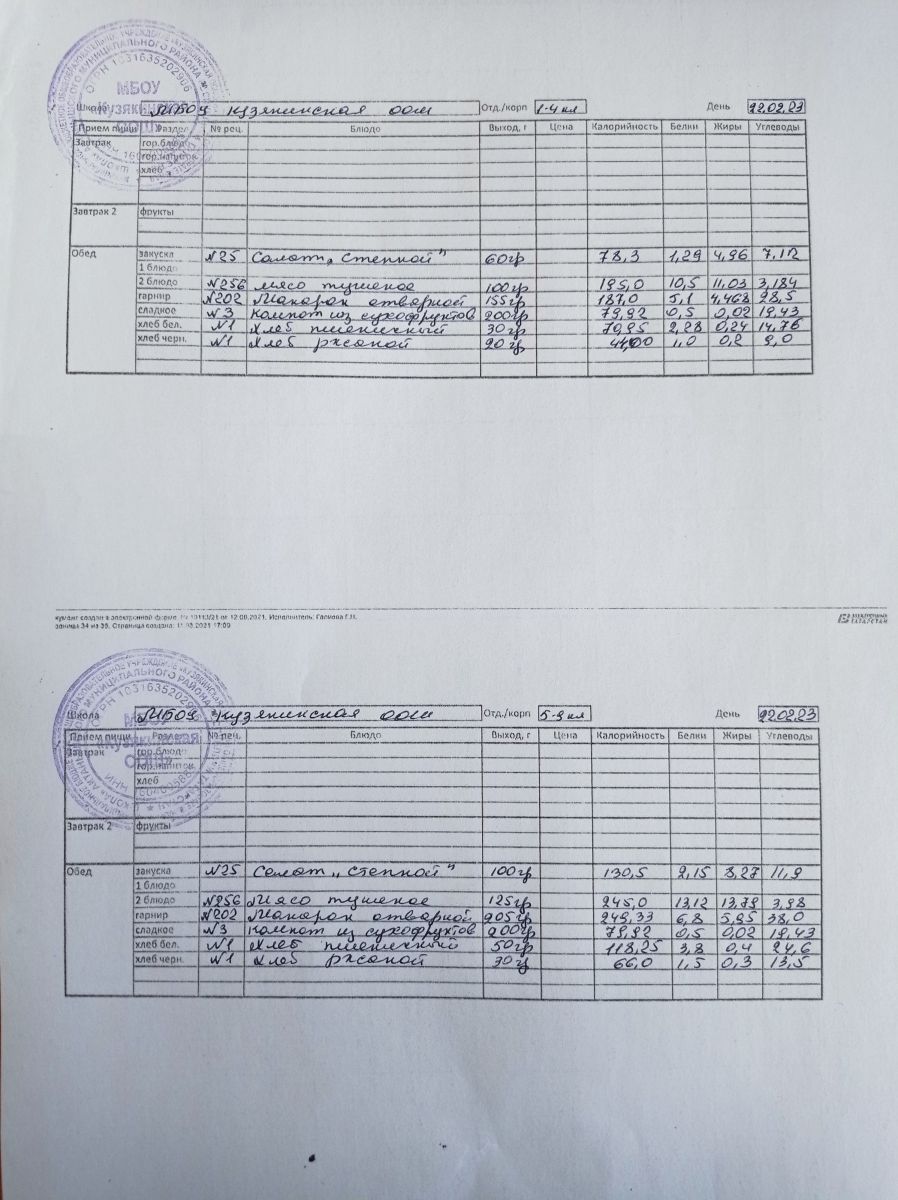 Школа МБОУ Кузякинская оош Отд./корп 1-4 кл День 22.02.23
Прием пищи Раздел № рец. Блюдо Выход, г Цена Калорийность Белки Жиры Углеводы
Завтрак гор.блюдо
гор.напиток
хлеб
Завтрак 2 фрукты
Обед закуска №25 Салат „Степной" 60гр 78,3 1,29 4,96 7,12
1 блюдо
2 блюдо №256 мясо тушеное 100гр 195,0 10,5 11,03 3,184
гарнир №202 Макарон отварной 155гр 187,0 5,1 4,468 28,5
сладкое №3 Компот из сухофруктов 200гр 79,92 0,5 0,02 19,43
хлеб бел. №1 Хлеб пшеничный 30гр 70,95 2,28 0,24 14,76
хлеб черн. №1 Хлеб ржаной 20гр 44,00 1,0 0,2 9,0
МБОУ
«Кузякинская
ООШ»
ОГРН 1031635202906
Исполнитель:
ЭЛЕКТРОННЫЙ
ТАТАРСТАН
Школа МБОУ Кузякинская оош Отд./корп 5-9 кл День 22.02.23
Прием пищи Раздел № рец. Блюдо Выход, г Цена Калорийность Белки Жиры Углеводы
Завтрак гор.блюдо
гор.напиток
хлеб
Завтрак 2 фрукты
Обед закуска №25 Салат „Степной" 100гр 130,5 2,15 8,27 11,9
1 блюдо
2 блюдо №256 Мясо тушеное 125гр 245,0 13,12 13,79 3,98
гарнир №202 Макарон отварной 205гр 249,33 6,8 5,95 38,0
сладкое №3 Компот из сухофруктов 200гр 79,92 0,5 0,02 19,43
хлеб бел. №1 Хлеб пшеничный 50гр 118,25 3,8 0,4 24,6
хлеб черн. №1 Хлеб ржаной 30гр 66,0 1,5 0,3 13,5
МБОУ
«Кузякинская
ООШ»
ОГРН 1031635202906